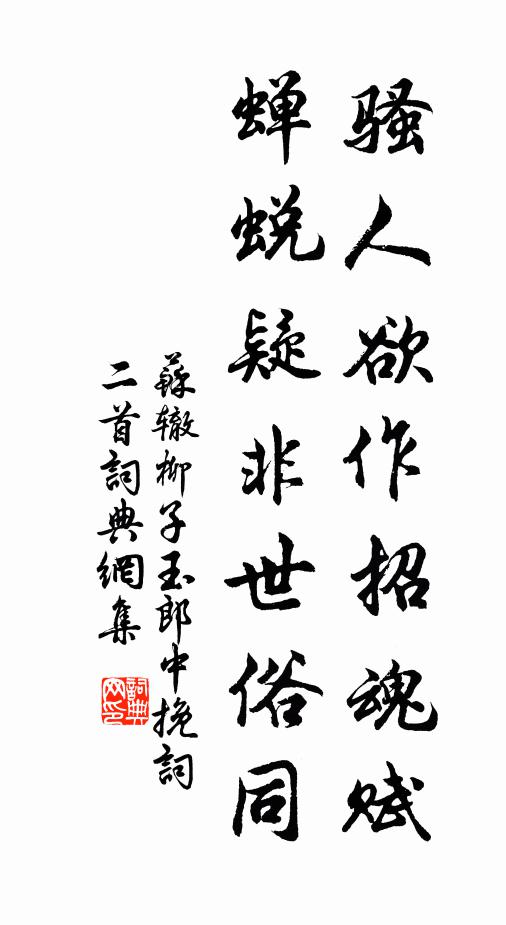 骚人欲作招魂赋
蝉蜕疑非世俗同
蘇辙柳子玉郎中挽詞
二首詞典網集
詞典网印